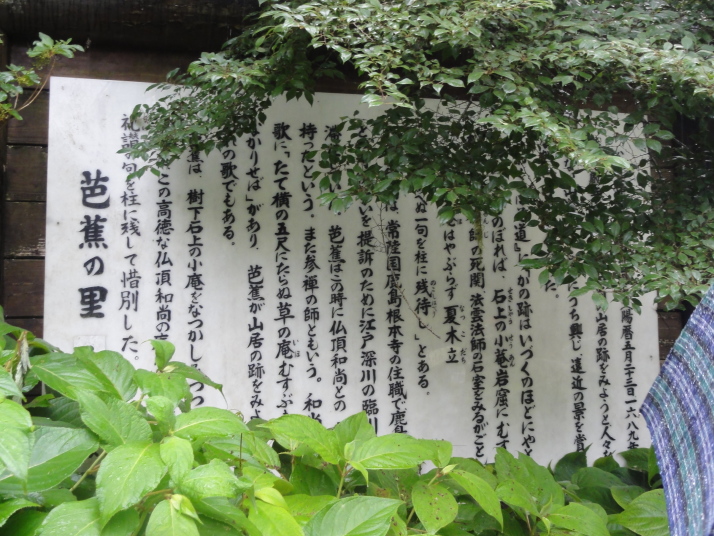 陽暦五月二十三日一六八九年
山居の跡をみようと人々
うち興じ、遠近の景を賞
た。
道」「かの跡はいづくのほどにやと
のぼれば、石上の小菴岩窟にむす
師の死関、法雲法師の石室をみるがごと
はやぶらず 夏木立
ぬ一句を柱に残侍し」とある。
は、常陸国鹿島根本寺の住職で鹿島
いを提訴のために江戸深川の臨川
芭蕉はこの時に仏頂和尚との
持ったという。また参禅の師ともいう。和尚
歌に、「たて横の五尺にたらぬ草の庵むすぶも
かりせば」があり、芭蕉が山居の跡をみよ
れの歌でもある。
蕉は、樹下石上の小庵をなつかしみつつ
この高徳な仏頂和尚の
句を柱に残して惜別した。
芭蕉の里